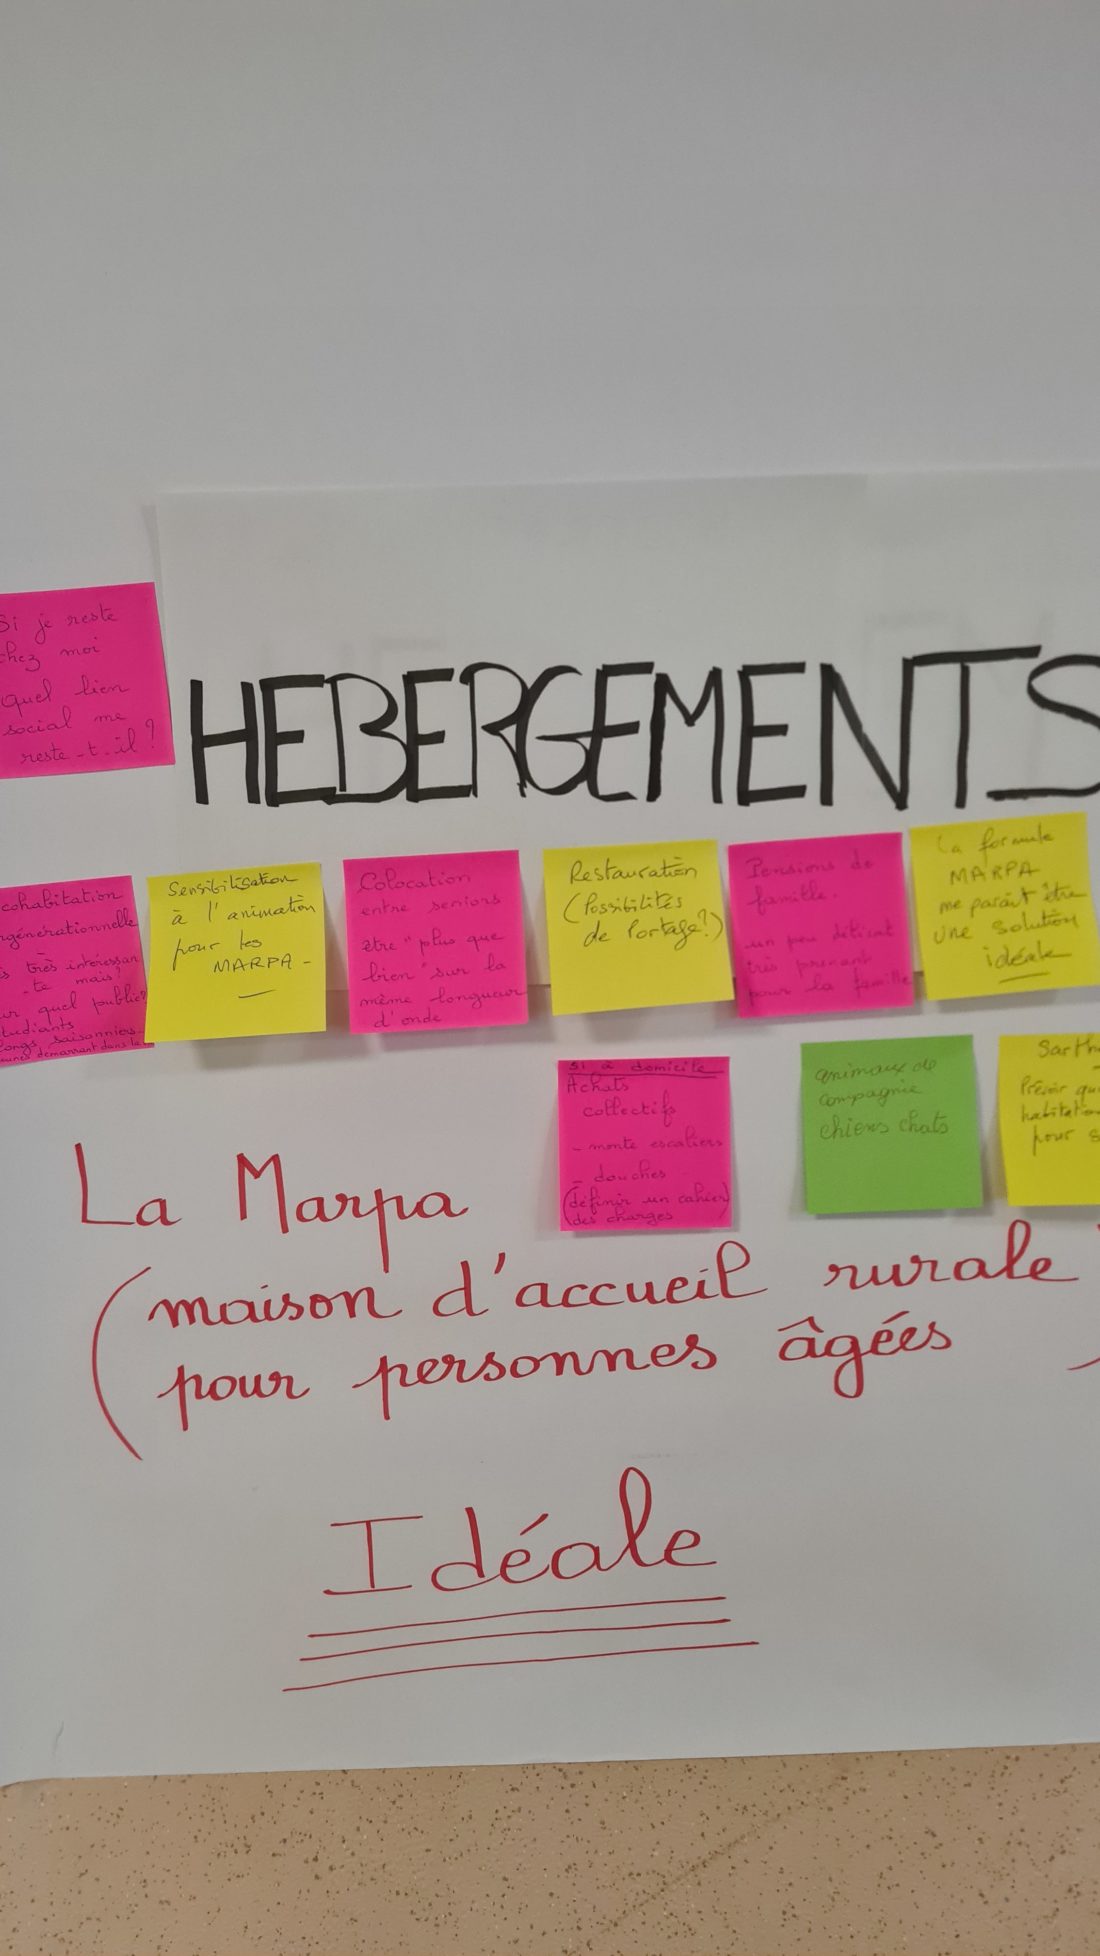 Si je reste
chez moi
quel lien
social me
reste-t-il?
HEBERGEMENTS
cohabitation
rgénérationnelle
très intéressan
te mais?
ur quel public?
tudiants
saisonniers
démarrant dans la
Sensibilisation
à l'animation
pour les
MARPA -
Colocation
entre seniors
être "plus que
bien" sur la
même longueur
d'onde
Restauration
(Possibilités
de Portage?)
Pensions de
famille.
un peu délicat
très prenant
pour la famille
La formule
MARPA
me paraît être
une solution
idéale
si à domicile
Achats
collectifs
- monte escaliers
- douches
(définir un cahier)
des charges
animaux de
compagnie
chiens chats
Sarth
Prévoir qu
habitatio
pour s
La Marpa
(maison d'accueil rurale
pour personnes âgées )
Idéale